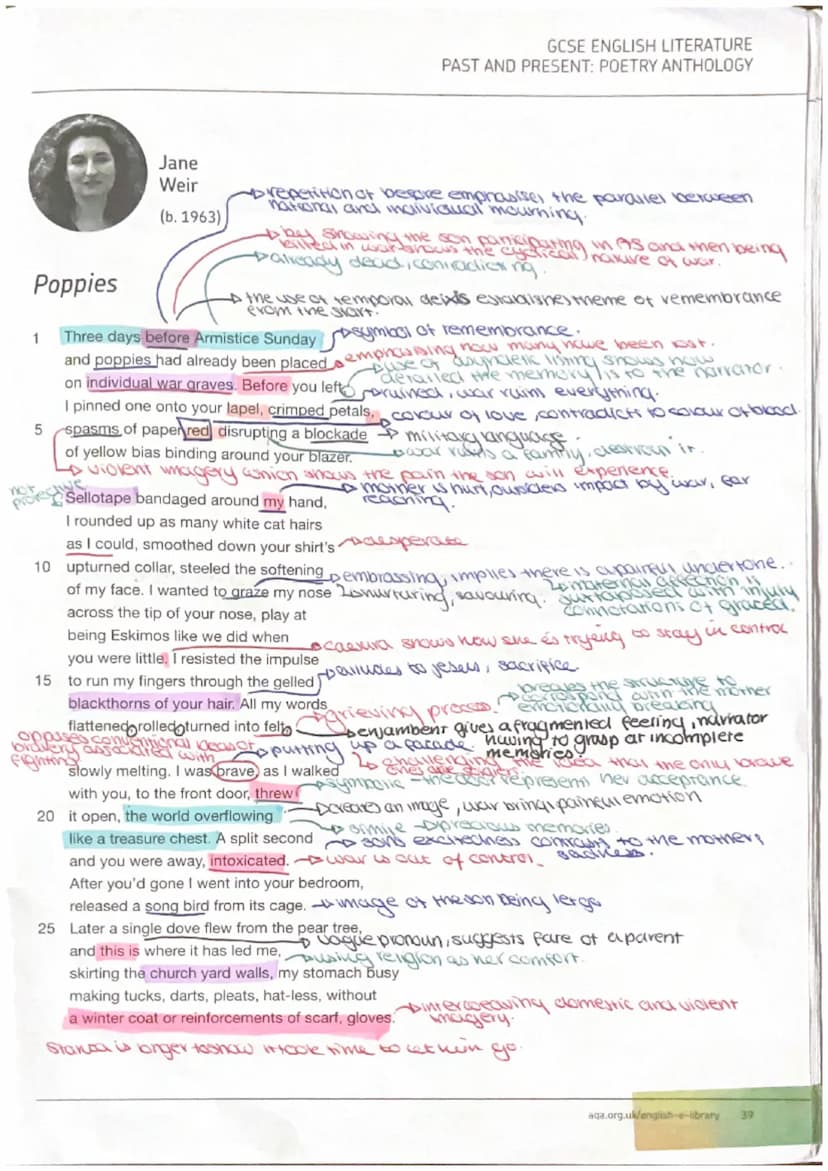 GCSE ENGLISH LITERATURE
PAST AND PRESENT: POETRY ANTHOLOGY
Jane
Weir
(b. 1963)
repetition of before emphasises the parallel between
national and individual mourning.
by showing the son participating in AS and then being
killed in war shows the cyclical nature of war.
already dead, contradicting.
Poppies
the use of temporal deixis establishes theme of remembrance
from the start.
1 Three days before Armistice Sunday
symbol of remembrance.
and poppies had already been placed
emphasising how many have been lost.
use of asyndetic listing shows how
detailed the memory is to the narrator.
on individual war graves. Before you left,
ruined, war ruins everything.
I pinned one onto your lapel, crimped petals,
colour of love, contradicts to colour of blood
5 spasms of paper red, disrupting a blockade
military language
of yellow bias binding around your blazer.
war ruins a family, destroys it.
violent imagery which shows the pain the son will experience.
not protective
mother is hurt, outsiders impact by war, far
reaching.
Sellotape bandaged around my hand,
I rounded up as many white cat hairs
as I could, smoothed down your shirt's
desperate
10 upturned collar, steeled the softening
embrassing, implies there is a painful undertone.
of my face. I wanted to graze my nose
nurturing, savouring.
maternal affection is
juxtaposed with injury
connotations of grazed.
across the tip of your nose, play at
being Eskimos like we did when
caesura shows how she is trying to stay in control
you were little. I resisted the impulse
alludes to jesus, sacrifice
15 to run my fingers through the gelled
breaks the structure to
correspond with the mother
emotionally breaking
blackthorns of your hair. All my words
grieving process.
flattened, rolled, turned into felt,
enjambent gives a fragmented feeling, narrator
having to grasp at incomplete
memories.
opposes conventional ideas of
bravery associated with
fighting
putting up a facade.
challenging the idea that the only brave
ones are soldiers.
slowly melting. I was brave, as I walked
with you, to the front door, threw
symbolic - the door represents her acceptance
20 it open, the world overflowing
creates an image, war brings painful emotion
simile - precious memories.
like a treasure chest. A split second
sons excitedness contrasts to the mothers
sadness.
and you were away, intoxicated.
war is out of control.
After you'd gone I went into your bedroom,
released a song bird from its cage.
image of the son being let go
25 Later a single dove flew from the pear tree,
vogue pronoun, suggests fare of a parent
and this is where it has led me,
using religion as her comfort.
skirting the church yard walls, my stomach busy
making tucks, darts, pleats, hat-less, without
interweaving domestic and violent
imagery.
a winter coat or reinforcements of scarf, gloves.
Stanza is longer to show it took time to let him go
aqa.org.uk/english-e-library 39